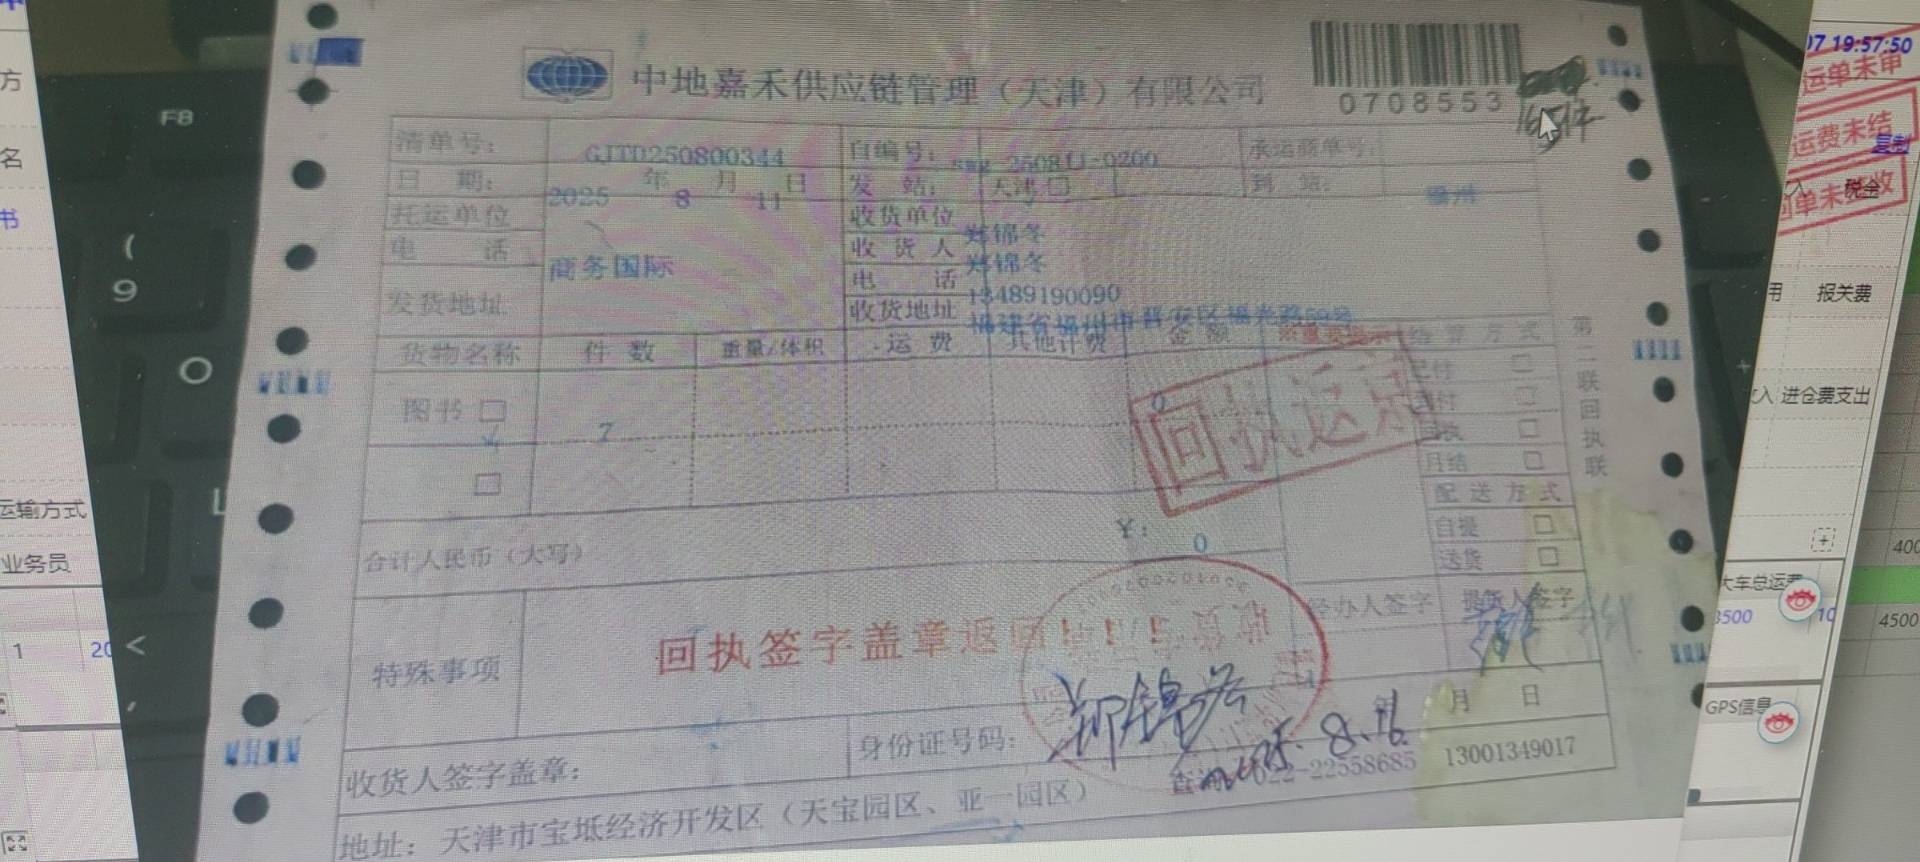 中地嘉禾供应链管理（天津）有限公司
0708553
清单号： GJTD250800344 自编号： 250811-0200 承运商单号：
日 期： 2025 年 8 月 11 日 发 站： 天津 到 站： 福州
托运单位 收货单位 郑锦冬
电 话 收 货 人 郑锦冬
商务国际 电 话 13489190090
发货地址 收货地址 福建省福州市晋安区福光路59号
货物名称 件 数 重量/体积 运 费 其他计费 金 额 结 算 方 式
图书 7 0
回执返京
已付
回执
月结
配 送 方 式
自提
送货
第二联回执联
合计人民币（大写） ￥： 0
经办人签字 提货人签字
特殊事项 回执签字盖章返回
郑锦冬
收货人签字盖章： 身份证号码： 年 月 日
8.16
022-22558685 13001349017
地址：天津市宝坻经济开发区（天宝园区、亚一园区）
F8
(
9
O
L
<
方
名
书
运输方式
业务员
1 20
07 19:57:50
运单未审
运费未结
复制
回单未签收
税金
用 报关费
入 进仓费支出
400
大车总运费
3500 10
4500
GPS信息